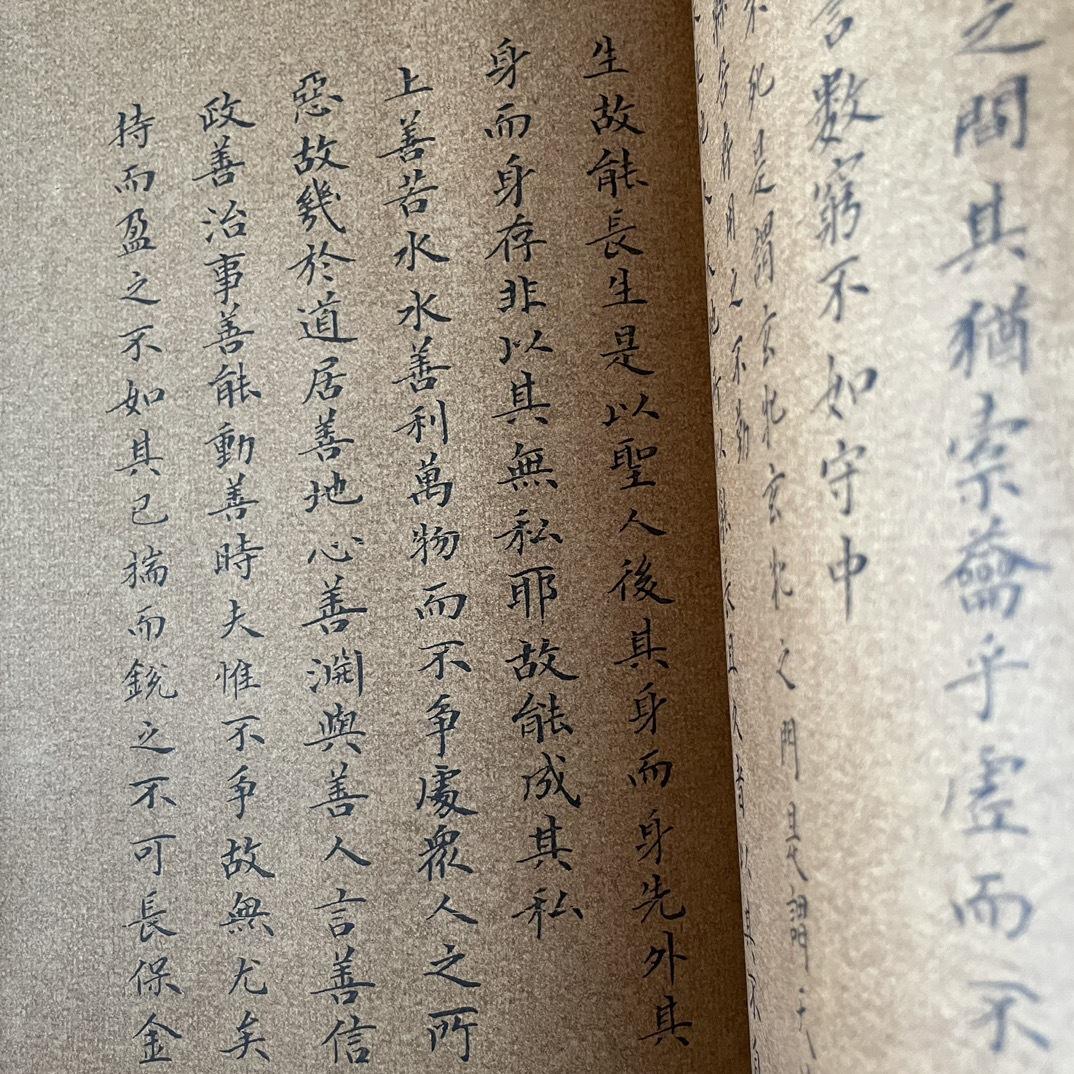 之間其猶索籥乎虛而不
言數窮不如守中
死是謂玄牝玄牝之門是謂
用之不勤
生故能長生是以聖人後其身而身先外其
身而身存非以其無私耶故能成其私
上善若水水善利萬物而不爭處眾人之所
惡故幾於道居善地心善淵與善人言善信
政善治事善能動善時夫惟不爭故無尤矣
持而盈之不如其已揣而銳之不可長保金